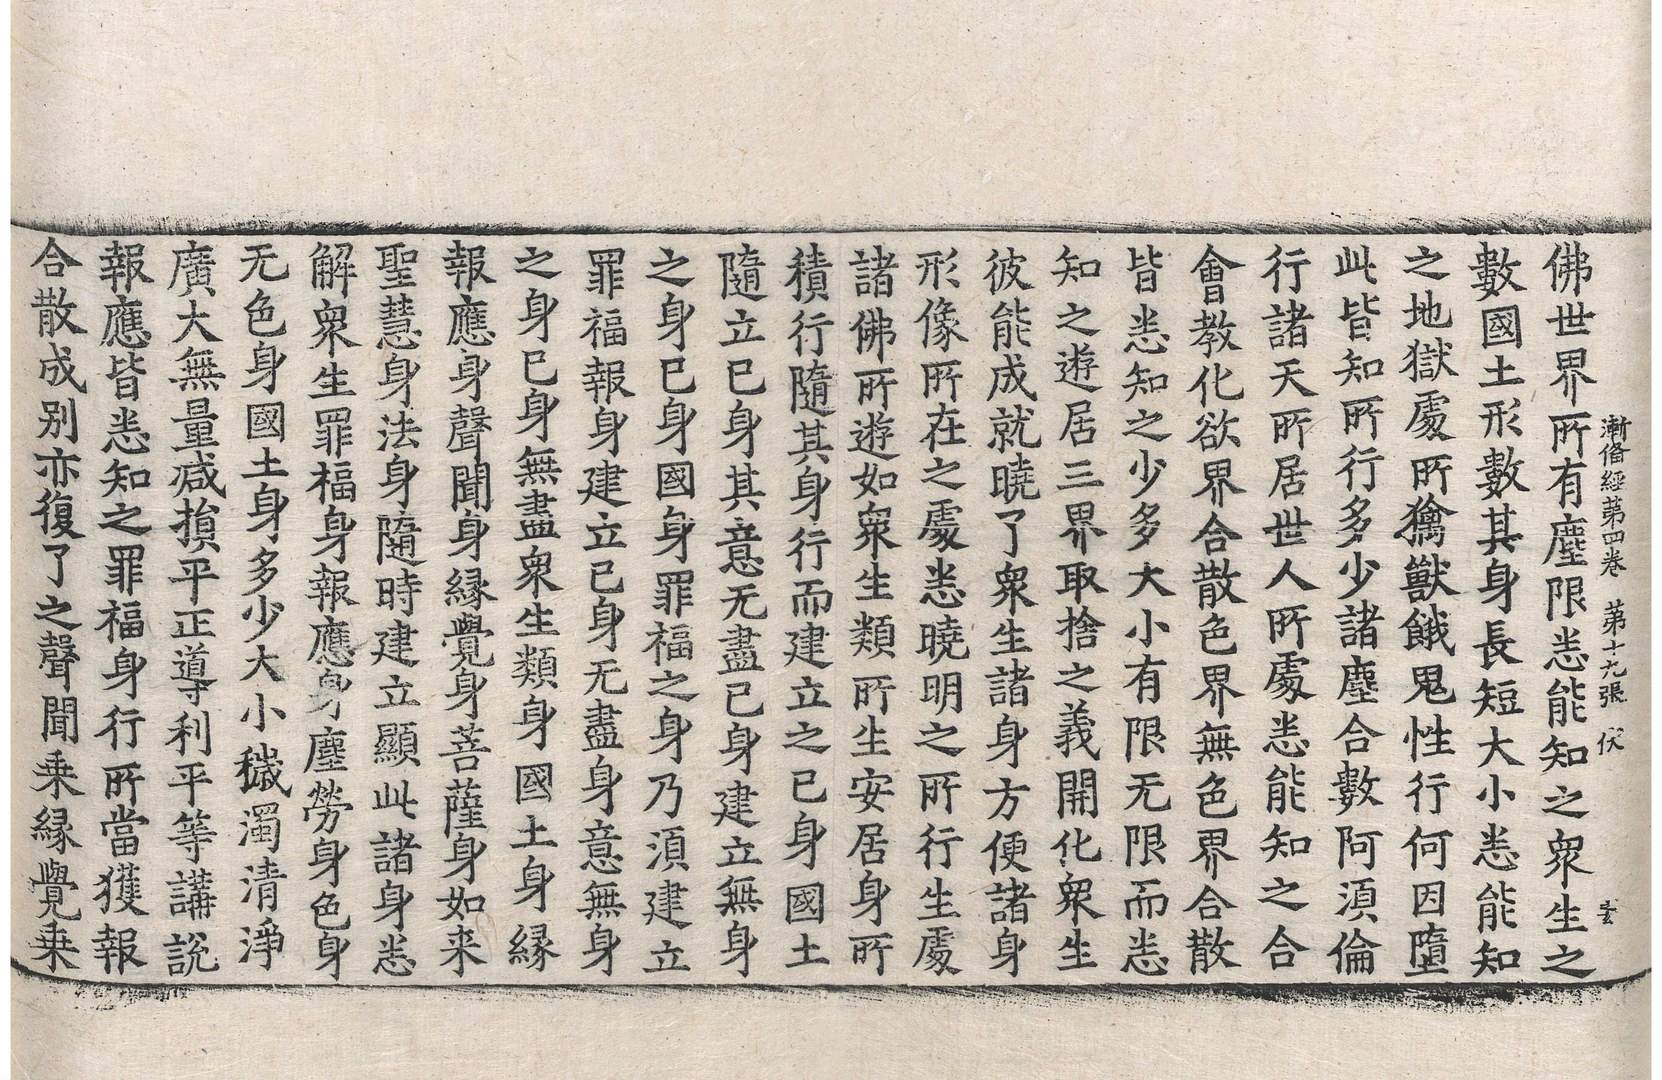 漸俻經第四卷　第十九張　伏
佛世界所有塵限悉能知之衆生之
數國土形數其身長短大小悉能知
之地獄處所禽獸餓鬼性行何因墮
此皆知所行多少諸塵合數阿須倫
行諸天所居世人所處悉能知之合
會教化欲界合散色界無色界合散
皆悉知之少多大小有限无限而悉
知之遊居三界取捨之義開化衆生
彼能成就曉了衆生諸身方便諸身
形像所在之處悉曉明之所行生處
諸佛所遊如衆生類所生安居身所
積行隨其身行而建立之已身國土
隨立已身其意无盡已身建立無身
之身已身國身罪福之身乃須建立
罪福報身建立已身无盡身意無身
之身已身無盡衆生類身國土身縁
報應身聲聞身縁覺身菩薩身如来
聖慧身法身隨時建立顯此諸身悉
解衆生罪福身報應身塵勞身色身
无色身國土身多少大小穢濁清淨
廣大無量减損平正導利平等講說
報應皆悉知之罪福身行所當獲報
合散成别亦復了之聲聞乘縁覺乘